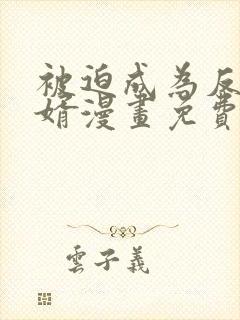 被迫成為反
婿漫畫免費
雲子義